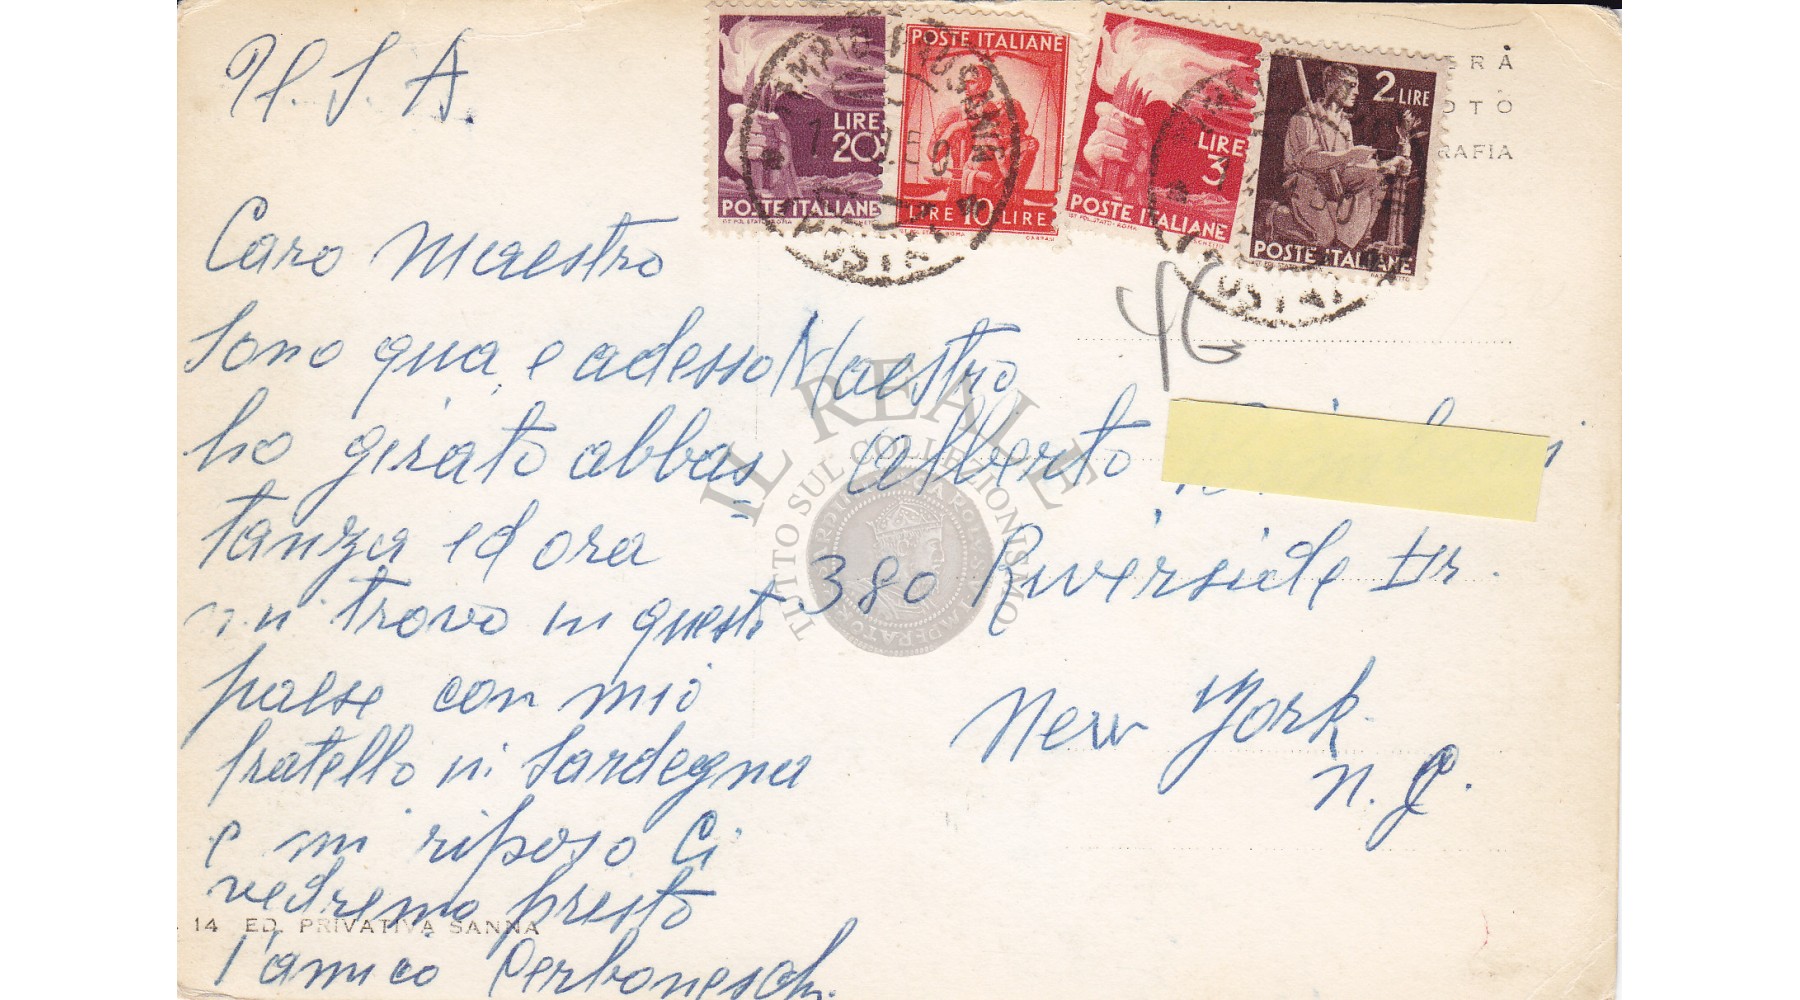 U. S. A.
LIRE
20
POSTE ITALIANE
POSTE ITALIANE
LIRE 10 LIRE
LIRE
3
POSTE ITALIANE
2 LIRE
POSTE ITALIANE
RAFIA
Caro Maestro
Sono qua e adesso
ho girato abbas=
tanza ed ora
mi trovo in questo
paese con mio
fratello in Sardegna
e mi riposo Ci
vedremo presto
l'amico
14 ED. PRIVATIVA SANNA
Maestro
Alberto
380 Riverside Dr.
New York
N. Y.
IL REALE
TUTTO SUL COLLEZIONISMO